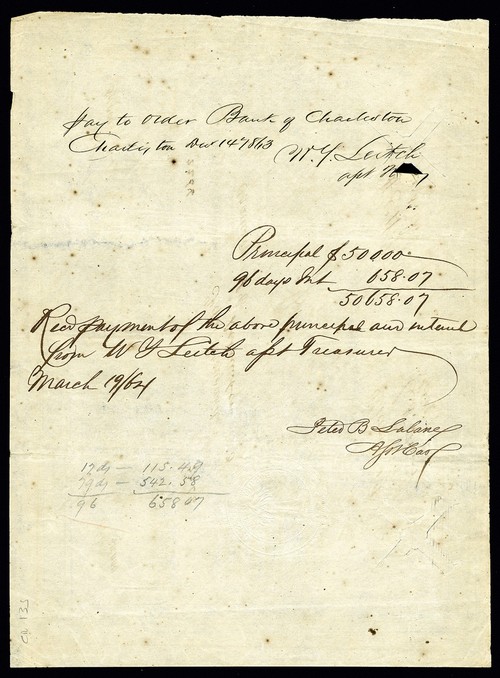 Pay to order Bank of Charleston
Charleston Decr 14th 1863
W. Y. Leitch
asst
Principal $50000..
96 days Int 658.07
50658.07
Recd payment of the above principal and interest
from W Y Leitch asst Treasurer
March 19/64
Peter B Lalane
Asst Cas
17 ds — 115.49
79 ds — 542.58
96 658 07
CH 135